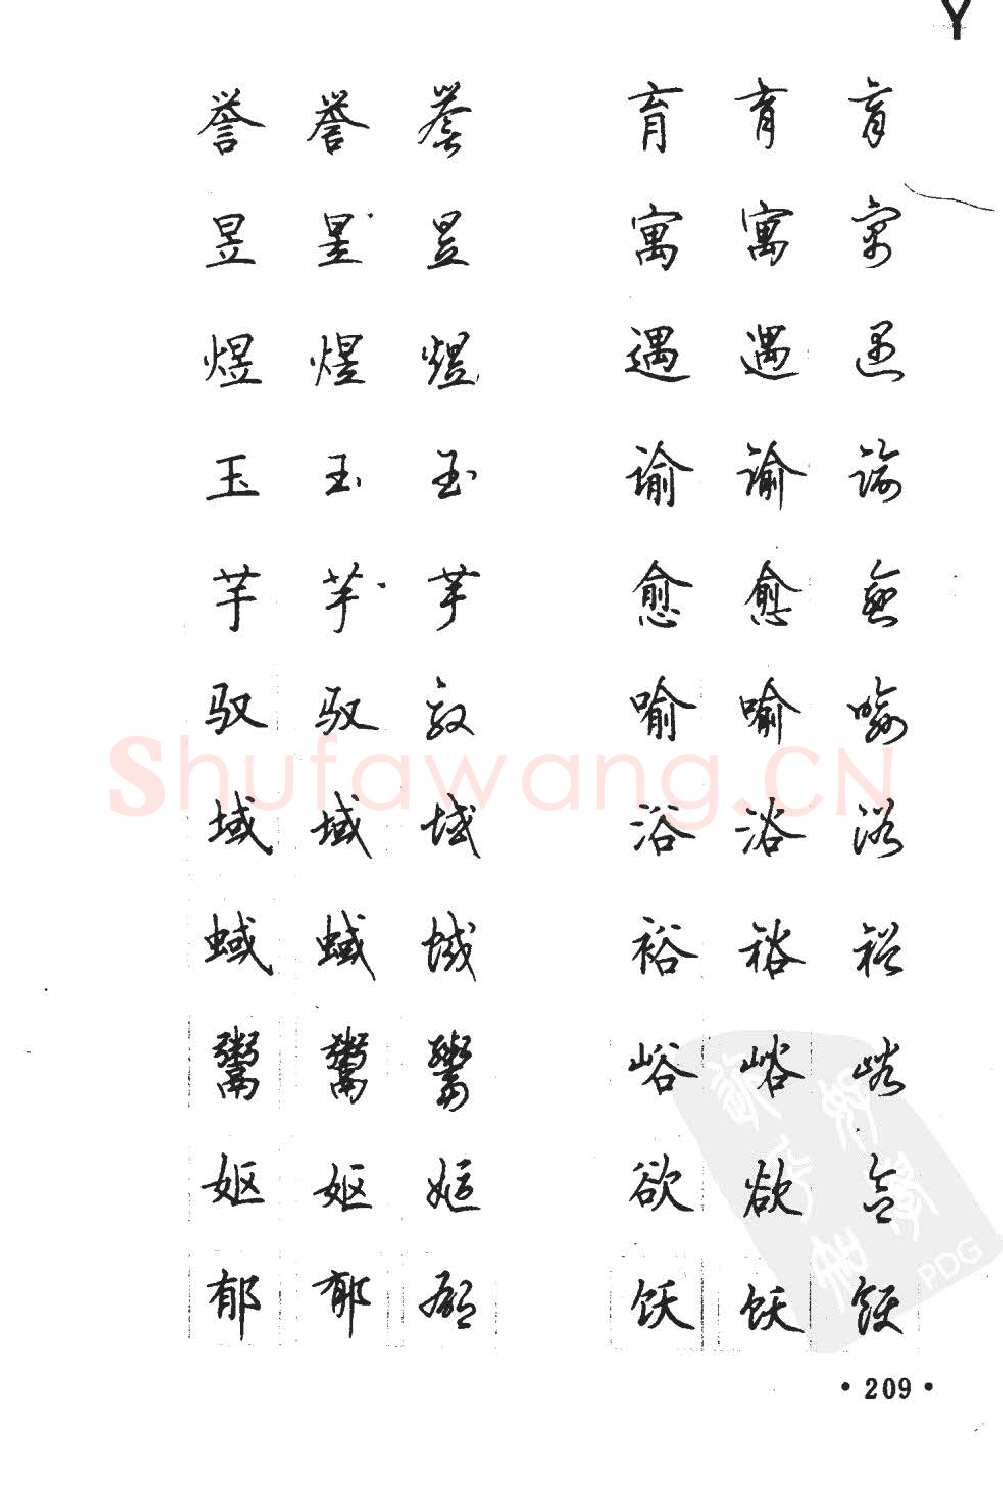 Y
誉 誉 誉 育 育 育
昱 昱 昱 寓 寓 寓
煜 煜 煜 遇 遇 遇
玉 玉 玉 谕 谕 谕
芋 芋 芋 愈 愈 愈
驭 驭 驭 喻 喻 喻
域 域 域 浴 浴 浴
蜮 蜮 蜮 裕 裕 裕
鬻 鬻 鬻 峪 峪 峪
妪 妪 妪 欲 欲 欲
郁 郁 郁 饫 饫 饫
Shufawang.CN
PDG
• 209 •